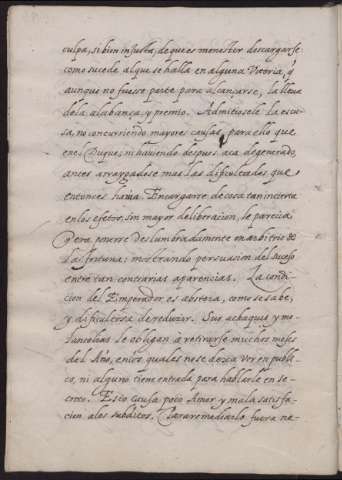 culpa, si bien injusta, de que es menester descargarse
como sucede al que se halla en alguna Vitoria, q̃
aunque no fuese parte para alcançarse, la lleua
de la alabança, y premio. Admitiosele la escu-
sa, no concurriendo mayores causas para ello que
en el Duque, ni hauiendo despues aca degenerado,
antes arraygadose mas las dificultades que
entonces hauia. Encargarse de cosa tan incierta
en los efetos, sin mayor deliberacion, le parecia
q̃ era ponerse deslumbradamente en arbitrio de
la fortuna: mostrando persuasion del suceso
entre tan contrarias aparencias. La condi-
cion del Emperador es absorta, como se sabe,
y dificultosa de reduzir. Sus achaques y me-
lancolias le obligan a retirarse muchos meses
del Año, en los quales no se dexa ver en publi-
co, ni alguno tiene entrada para hablarle en se-
creto. Esto causa poco Amor y mala satisfa-
cion a los subditos. Para remediarlo fuera ne-